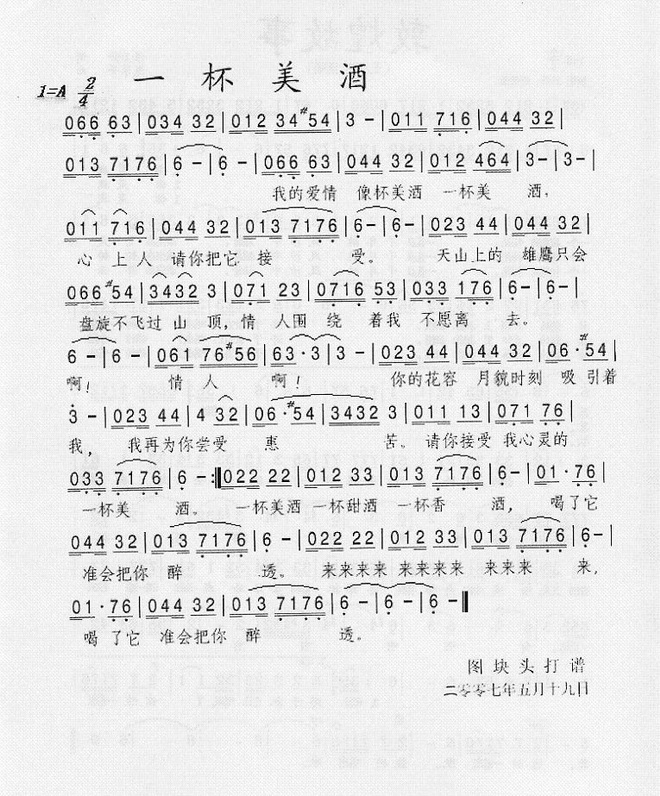 一杯美酒
1=A 2/4
066 63|034 32|012 34#54|3 -|011 716|044 32|
013 7176|6 -|6 -|066 63|044 32|012 464|3 -|3 -|
我的爱情 像杯美酒 一杯美 酒,
011 716|044 32|013 7176|6 -|6 -|023 44|044 32|
心 上人 请你把它 接 爱。 天山上的 雄鹰只会
066 #54|3432 3|071 23|0716 53|033 176|6 -|6 -|
盘旋不飞过 山 顶,情 人围 绕 着我 不愿离 去。
6 -|6 -|061 76#56|63·3|3 -|023 44|044 32|06·#54|
啊! 情 人 啊! 你的花容 月貌时刻 吸 引着
3 -|023 44|4 32|06·#54|3432 3|011 13|071 76|
我, 我再为你尝受 惠 苦。请你接受 我心灵的
033 7176|6 -:‖022 22|012 33|013 7176|6 -|01·76|
一杯美 酒。 一杯美酒 一杯甜酒 一杯香 酒, 喝了它
044 32|013 7176|6 -|022 22|012 33|013 7176|6 -|
准会把你 醉 透。 来来来来 来来来来 来来来 来,
01·76|044 32|013 7176|6 -|6 -|6 -‖
喝 了它 准会把你 醉 透。
图块头打谱
二零零七年五月十九日